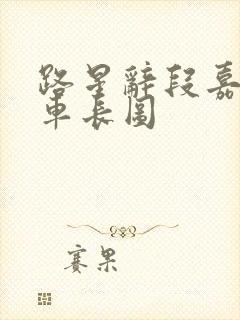 路星辭段嘉
車長圖
赛果